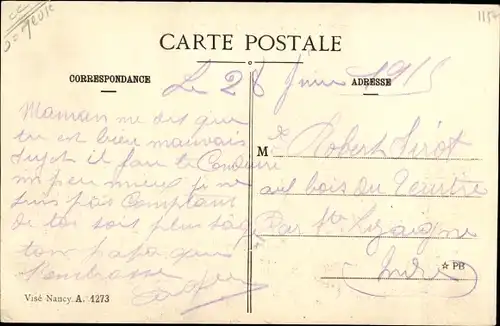 1157
CARTE POSTALE
CORRESPONDANCE
Le 28 Juin 1915
ADRESSE
Maman me dit que
tu est bien mauvais
sujet il faut te Conduire
un peu mieux je ne
suis pas Comptant
de toi soit plus sage
ton papa qui
t'embrasse
M Robert
aux bois du
Par Ste Lizaigne
Indre
☆ PB
Visé Nancy. A. 1273